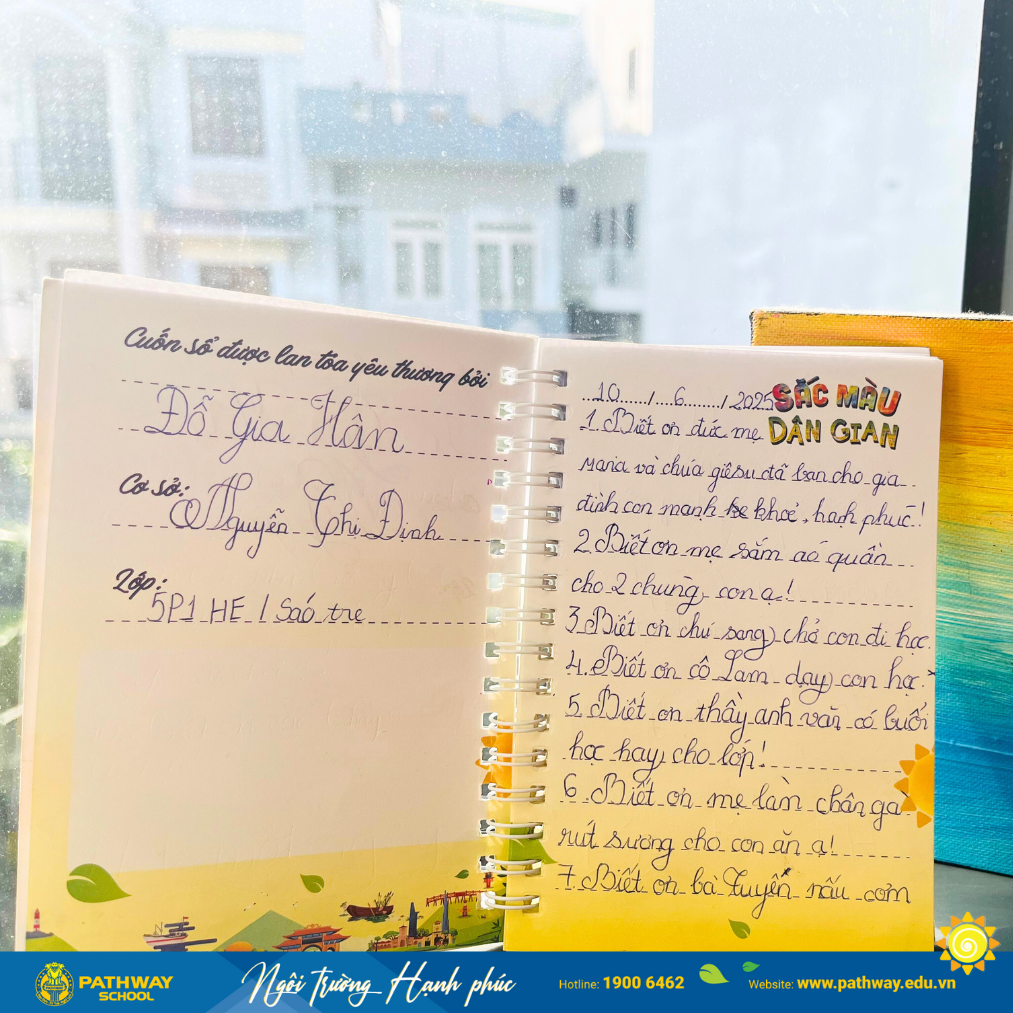 Cuốn sổ được lan tỏa yêu thương bởi
Đỗ Gia Hân
Cơ sở:
Nguyễn Thị Định
Lớp:
5P1 HE / Saó tre
10 / 6 / 2025
SẮC MÀU
DÂN GIAN
1. Biết ơn đức mẹ
Maria và chúa giêsu đã ban cho gia
đình con mạnh khoẻ, hạnh phúc!
2. Biết ơn mẹ sắm aó quần
cho 2 chúng con ạ!
3. Biết ơn chú sang chở con đi học.
4. Biết ơn cô Lam dạy con học.
5. Biết ơn thầy anh văn có buổi
học hay cho lớp!
6. Biết ơn mẹ làm chân gà
rút sương cho con ăn ạ!
7. Biết ơn bà Tuyền nấu cơm
PATHWAY
SCHOOL
Ngôi trường Hạnh phúc
Hotline: 1900 6462
Website: www.pathway.edu.vn